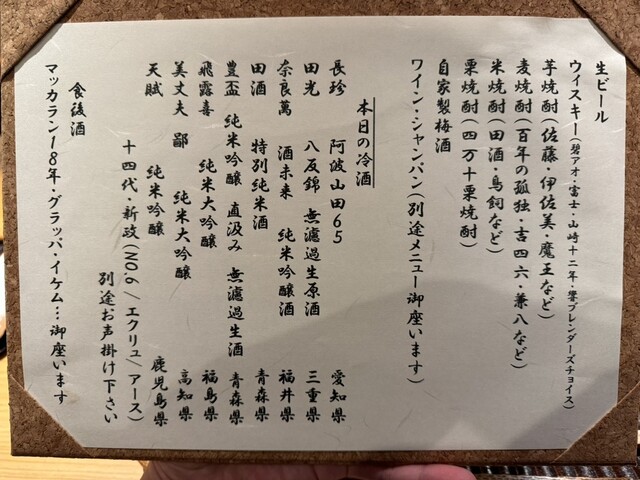 生ビール
ウィスキー(碧アオ・富士・山崎十二年・響ブレンダーズチョイス)
芋焼酎(佐藤・伊佐美・魔王など)
麦焼酎(百年の孤独・吉四六・兼八など)
米焼酎(田酒・鳥飼など)
栗焼酎(四万十栗焼酎)
自家製梅酒
ワイン・シャンパン(別途メニュー御座います)
本日の冷酒
長珍 阿波山田65 愛知県
田光 八反錦 無濾過生原酒 三重県
奈良萬 酒未来 純米吟醸酒 福井県
田酒 特別純米酒 青森県
豊盃 純米吟醸 直汲み 無濾過生酒 青森県
飛露喜 純米大吟醸 福島県
美丈夫 鄙 純米大吟醸 高知県
天賦 純米吟醸 鹿児島県
十四代・新政(NO.6/エクリュ/アース)
別途お声掛け下さい
食後酒
マッカラン18年・グラッパ・イケム…御座います